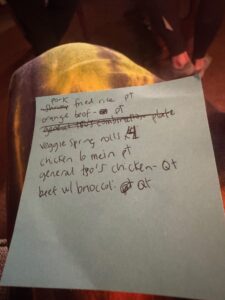 pork
shrimp fried rice pt
orange beef - pt
general tso's combination plate
veggie spring rolls 4
chicken lo mein pt
general tso's chicken - Qt
beef w/ broccoli - Qt